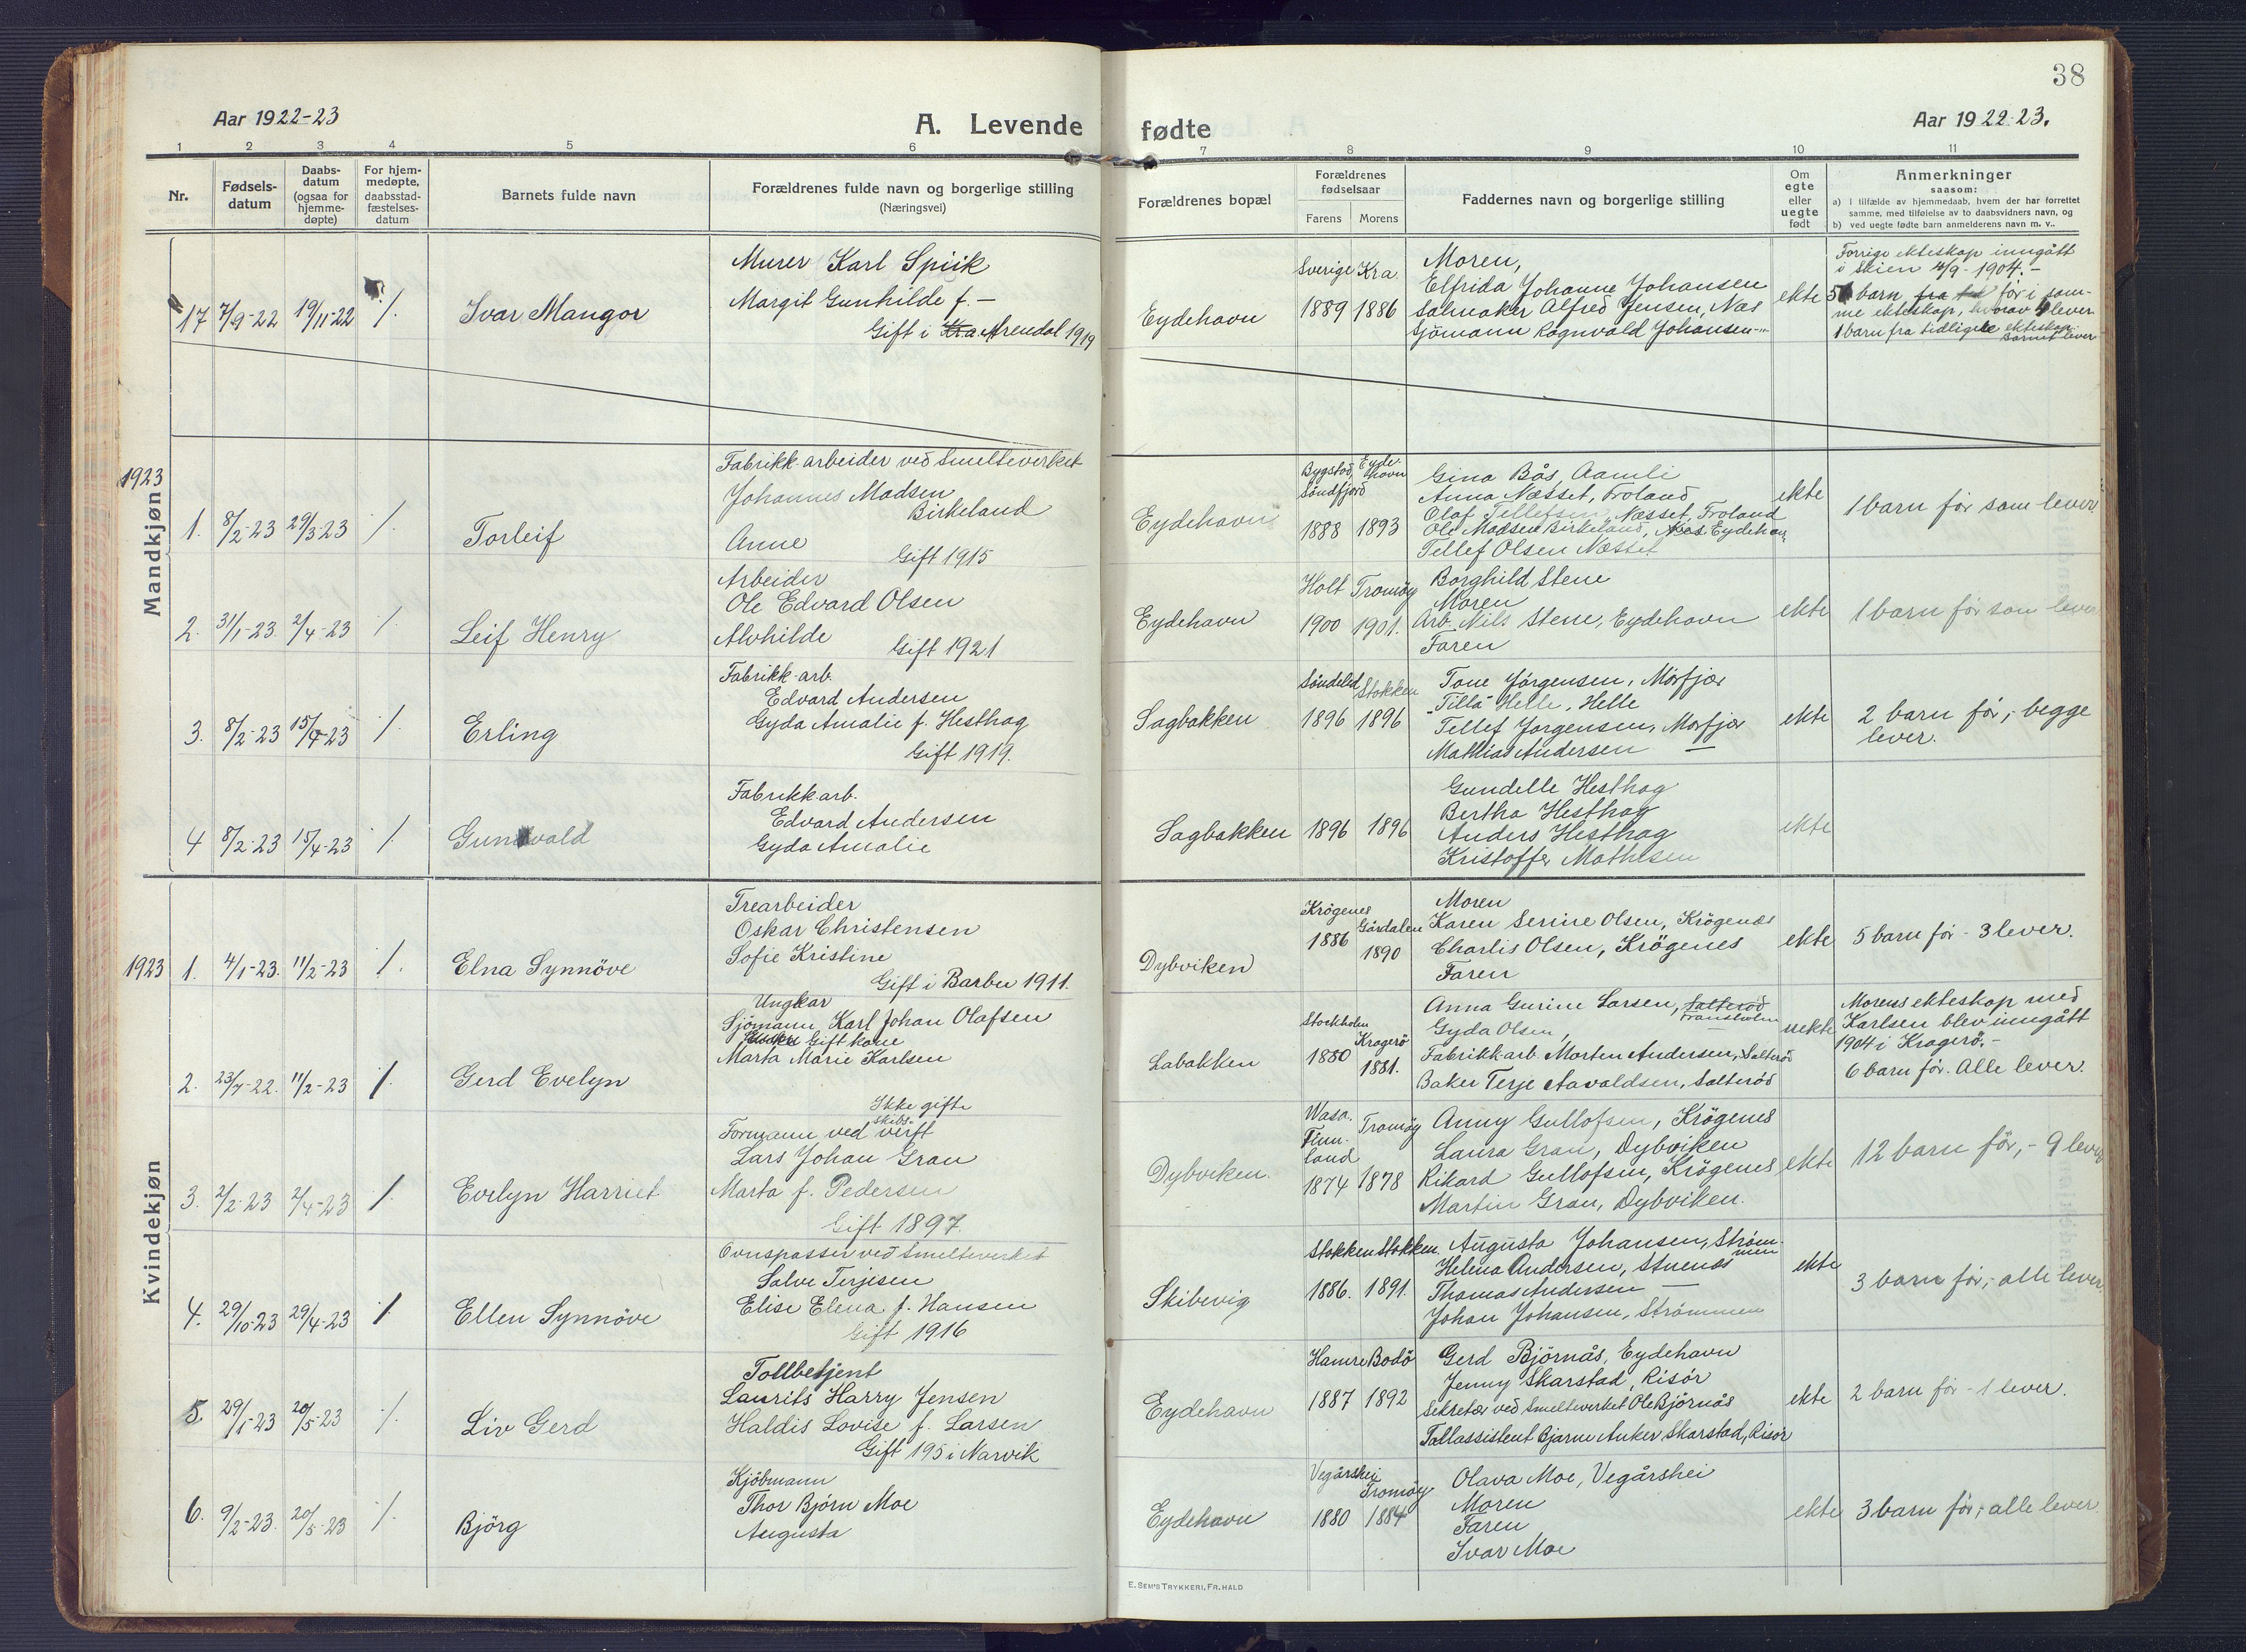 38
Aar 1922-23
A. Levende fødte
Aar 1922-23.
1 2 3 4 5 6 7 8 9 10 11
Nr.
Fødsels-
datum
Daabs-
datum
(ogsaa for
hjemme-
døpte)
For hjem-
medøpte,
daabsstad-
fæstelses-
datum
Barnets fulde navn
Forældrenes fulde navn og borgerlige stilling
(Næringsvei)
Forældrenes bopæl
Forældrenes
fødselsaar
Farens Morens
Faddernes navn og borgerlige stilling
Om
egte
eller
uegte
født
Anmerkninger
saasom:
a) I tilfælde av hjemmedaab, hvem der har forrettet
samme, med tilføielse av to daabsvidners navn, og
b) ved uegte fødte barn anmelderens navn m. v..
17 7/9-22 19/11-22 /. Ivar Mangor
Murer Karl Spiik
Margit Gunhilde f. —
Gift i Kra. Arendal 1919
Eydehavn
Sverige Kra.
1889 1886
Moren,
Elfrida Johanne Johansen
Salmaker Alfred Jensen, Nas
Sjömann Ragnvald Johansen -"-
ekte
Forrige ekteskap inngått
i Skien /9-1904.-
5 barn før i sam-
me ekteskap, hvorav 4 lever
1 barn fra tidligere ekteskap.
Barnet lever
1923
Mandkjøn
1. 8/2-23 29/3-23 /. Torleif
Fabrikk-arbeider ved Smelteverket
Johannes Madsen
Birkeland
Anne
Gift 1915
Eydehavn
Bygstad, Eyde-
Söndfjord havn
1888 1893
Gina Bås, Aamli
Anna Næsset, Froland
Olaf Tellefsen, Næsset, Froland
Ole Madsen Birkeland, Nas Eydehavn
Tellef Olsen Næsset
ekte
1 barn før som lever
2. 31/1-23. 2/4-23 /. Leif Henry
Arbeider
Ole Edvard Olsen
Alvhilde
Gift 1921
Eydehavn
Holt Tromøy
1900 1901.
Borghild Stene
Moren
Arb. Nils Stene, Eydehavn
Faren
ekte
1 barn før som lever
3. 8/2-23 15/4-23 /. Erling
Fabrikk-arb.
Edvard Andersen
Gyda Amalie f. Hesthag
Gift 1919.
Sagbakken
Söndeled Stokken
1896 1896
Tone Jörgensen, Mörfjær
"Tilla" Helle, Helle
Tellef Jørgensen, Mörfjær
Mathias Andersen —
ekte
2 barn før; begge
lever.
4 8/2-23 15/4-23 /. Gunvald
Fabrikkarb.
Edvard Andersen
Gyda Amalie
Sagbakken
1896 1896
Gundelle Hesthag
Bertha Hesthag
Anders Hesthag
Kristoffer Mathisen
ekte
1923
Kvindekjøn
1. 4/1-23. 11/2-23 /. Elna Synnöve
Trearbeider
Oskar Christensen
Sofie Kristine
Gift i Barbu 1911.
Dybviken
Krögenes Gårdalen
1886 1890
Moren
Karen Serine Olsen, Krögenes
Charlis Olsen, Krögenes
Faren
ekte
5 barn før - 3 lever.
2. 23/7-22. 11/2-23 /. Gerd Evelyn
Ungkar
Sjömann Karl Johan Olafsen
Gift kone
Marta Marie Karlsen
Ikke gifte
Labakken
Stockholm Kragerö
1880 1881.
Anna Gurine Larsen, Salteröd
Gyda Olsen,
Fabrikk-arb. Morten Andersen, Salteröd
Baker Terje Aavaldsen, Salteröd
uekte
Morens ekteskap med
Karlsen blev inngått
1904 i Kragerö.-
6 barn før. Alle lever.
3. 2/2-23 2/4-23 /. Evelyn Harriet
Formann ved skibs-
verft
Lars Johan Gran
Marta f. Pedersen
Gift 1897.
Dybviken.
Wasa. Tromøy
Finn-
land
1874 1878
Anny Gullofsen, Krögenes
Laura Gran, Dybviken
Rikard Gullofsen, Krögenes
Martin Gran, Dybviken.
ekte
12 barn før, - 9 lever
4. 29/10-23 29/4-23 /. Ellen Synnöve
Ovnspasser ved Smelteverket
Salve Terjesen
Elise Elena f. Hansen
Gift 1916
Skibevig
Stokken Stokken.
1886. 1891.
Augusta Johansen, Ström-
men
Helena Andersen, Stuenes
Thomas Andersen —
Johan Johansen, Strömmen
ekte
3 barn før; alle lever
5. 29/1-23 20/5-23 /. Liv Gerd
Tollbetjent
Laurits Harry Jensen
Haldis Lovise f. Larsen
Gift 195 i Narvik
Eydehavn
Hamre Bodö
1887 1892
Gerd Björnås, Eydehavn
Jenny Skarstad, Risør
Sekretær ved Smelteverket Ole Bjørnås
Tollassistent Bjarne Anker Skarstad, Risør
ekte
2 barn før - 1 lever.
6. 9/2-23. 20/5-23 /. Björg
Kjöbmann
Thor Bjørn Moe
Augusta
Eydehavn
Vegårshei Tromøy
1880 1884
Olava Moe, Vegårshei
Moren
Faren
Ivar Moe
ekte
3 barn før; alle lever
E. SEM'S TRYKKERI, FR. HALD